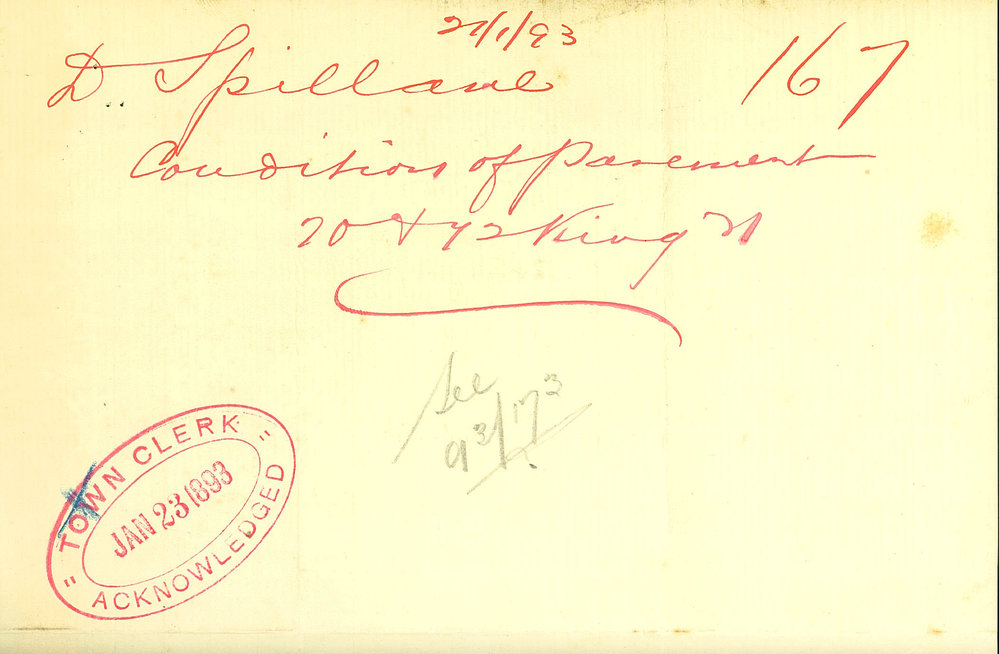 21/1/93
D. Spillane 167
Condition of Pavement
70 & 72 King St
See
93/173
"TOWN CLERK"
JAN 23 1893
ACKNOWLEDGED